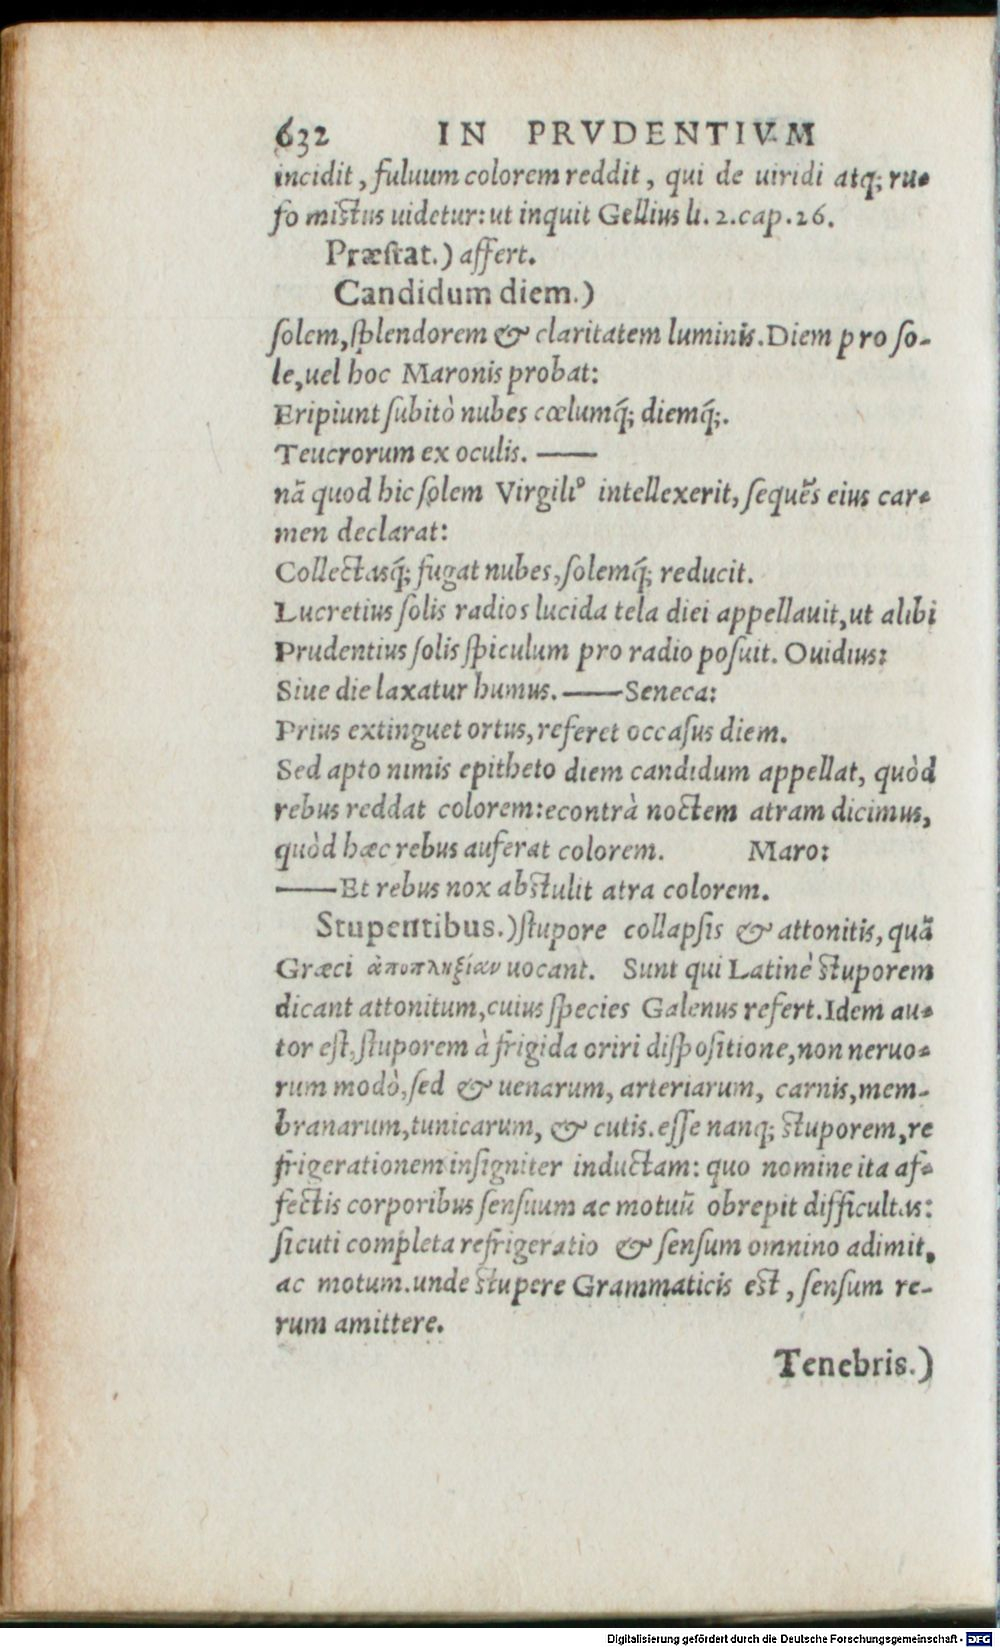 632 IN PRVDENTIVM
incidit, fuluum colorem reddit, qui de uiridi atq; ru-
fo mistus uidetur: ut inquit Gellius li. 2. cap. 26.
Præstat.) affert.
Candidum diem.)
solem, splendorem & claritatem luminis. Diem pro so-
le, uel hoc Maronis probat:
Eripiunt subitò nubes cœlumq́; diemq́;.
Teucrorum ex oculis. ——
nã quod hic solem Virgili⁹ intellexerit, sequẽs eius car-
men declarat:
Collectasq́; fugat nubes, solemq́; reducit.
Lucretius solis radios lucida tela diei appellauit, ut alibi
Prudentius solis spiculum pro radio posuit. Ouidius:
Siue die laxatur humus. —— Seneca:
Prius extinguet ortus, referet occasus diem.
Sed apto nimis epitheto diem candidum appellat, quòd
rebus reddat colorem: econtrà noctem atram dicimus,
quòd hæc rebus auferat colorem. Maro:
—— Et rebus nox abstulit atra colorem.
Stupentibus.) stupore collapsis & attonitis, quã
Græci ἀποπληξίαν uocant. Sunt qui Latinè stuporem
dicant attonitum, cuius species Galenus refert. Idem au-
tor est, stuporem à frigida oriri dispositione, non neruo-
rum modò, sed & uenarum, arteriarum, carnis, mem-
branarum, tunicarum, & cutis. esse nanq; stuporem, re
frigerationem insigniter inductam: quo nomine ita af-
fectis corporibus sensuum ac motuũ obrepit difficultas:
sicuti completa refrigeratio & sensum omnino adimit,
ac motum. unde stupere Grammaticis est, sensum re-
rum amittere.
Tenebris.)
Digitalisierung gefördert durch die Deutsche Forschungsgemeinschaft - DFG